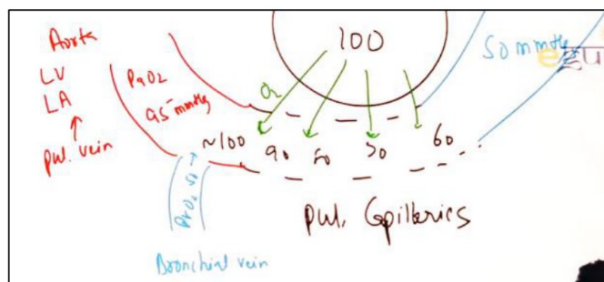 Aorta
LV
LA
↑
pul. vein
PaO2
95 mmHg
100
O2
50 mmHg
~100 90 80 70 60
PvO2 50 →
Pul. Capillaries
Bronchial vein